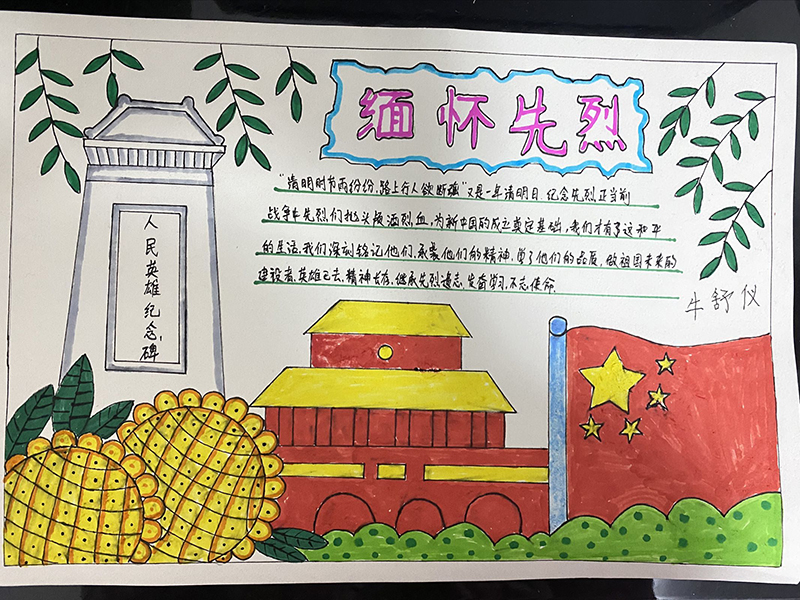 缅怀先烈
“清明时节雨纷纷，路上行人欲断魂”又是一年清明日，纪念先烈正当前
战争中先烈们抛头颅洒烈血，为新中国的成立奠定基础，我们才有了这和平
的生活，我们深刻铭记他们，承袭他们的精神，学习他们的品质，做祖国未来的
建设者，英雄已去，精神长存，继承先烈遗志，发奋学习，不忘使命.
牛舒仪
人民英雄纪念碑